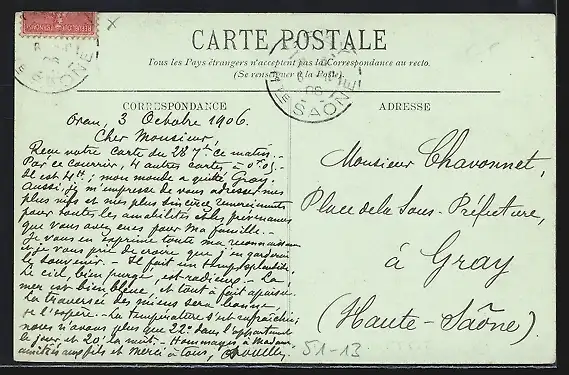 CARTE POSTALE
Tous les Pays étrangers n'acceptent pas la Correspondance au recto.
(Se renseigner à la Poste).
CORRESPONDANCE
Oran, 3 Octobre 1906.
Cher Monsieur,
Reçu votre Carte du 28 7bre ce matin.
Par ce courrier, 4 autres cartes à 0f05.
Il est 4H; mon monde a quitté Gray.
Aussi, je m'empresse de vous adresser mes
plus vifs et mes plus sincères remerciements
pour toutes les amabilités et les prévenances
que vous avez eues pour ma famille.
Je vous en exprime toute ma reconnaissance
et je vous prie de croire que j'en garderai
le souvenir. Il fait un temps splendide.
Le ciel, bien purgé, est radieux. La
mer est bien bleue, et tout à fait apaisée.
La traversée des miens sera bonne
je l'espère. La température s'est rafraîchie;
nous n'avons plus que 22° dans l'appartement
le jour et 20° la nuit. Hommages à Madame
amitiés aux fils et Merci à tous,
ADRESSE
Monsieur Chavonnet,
Place de la Sous-Préfecture,
à Gray
(Haute-Saône)
51-13